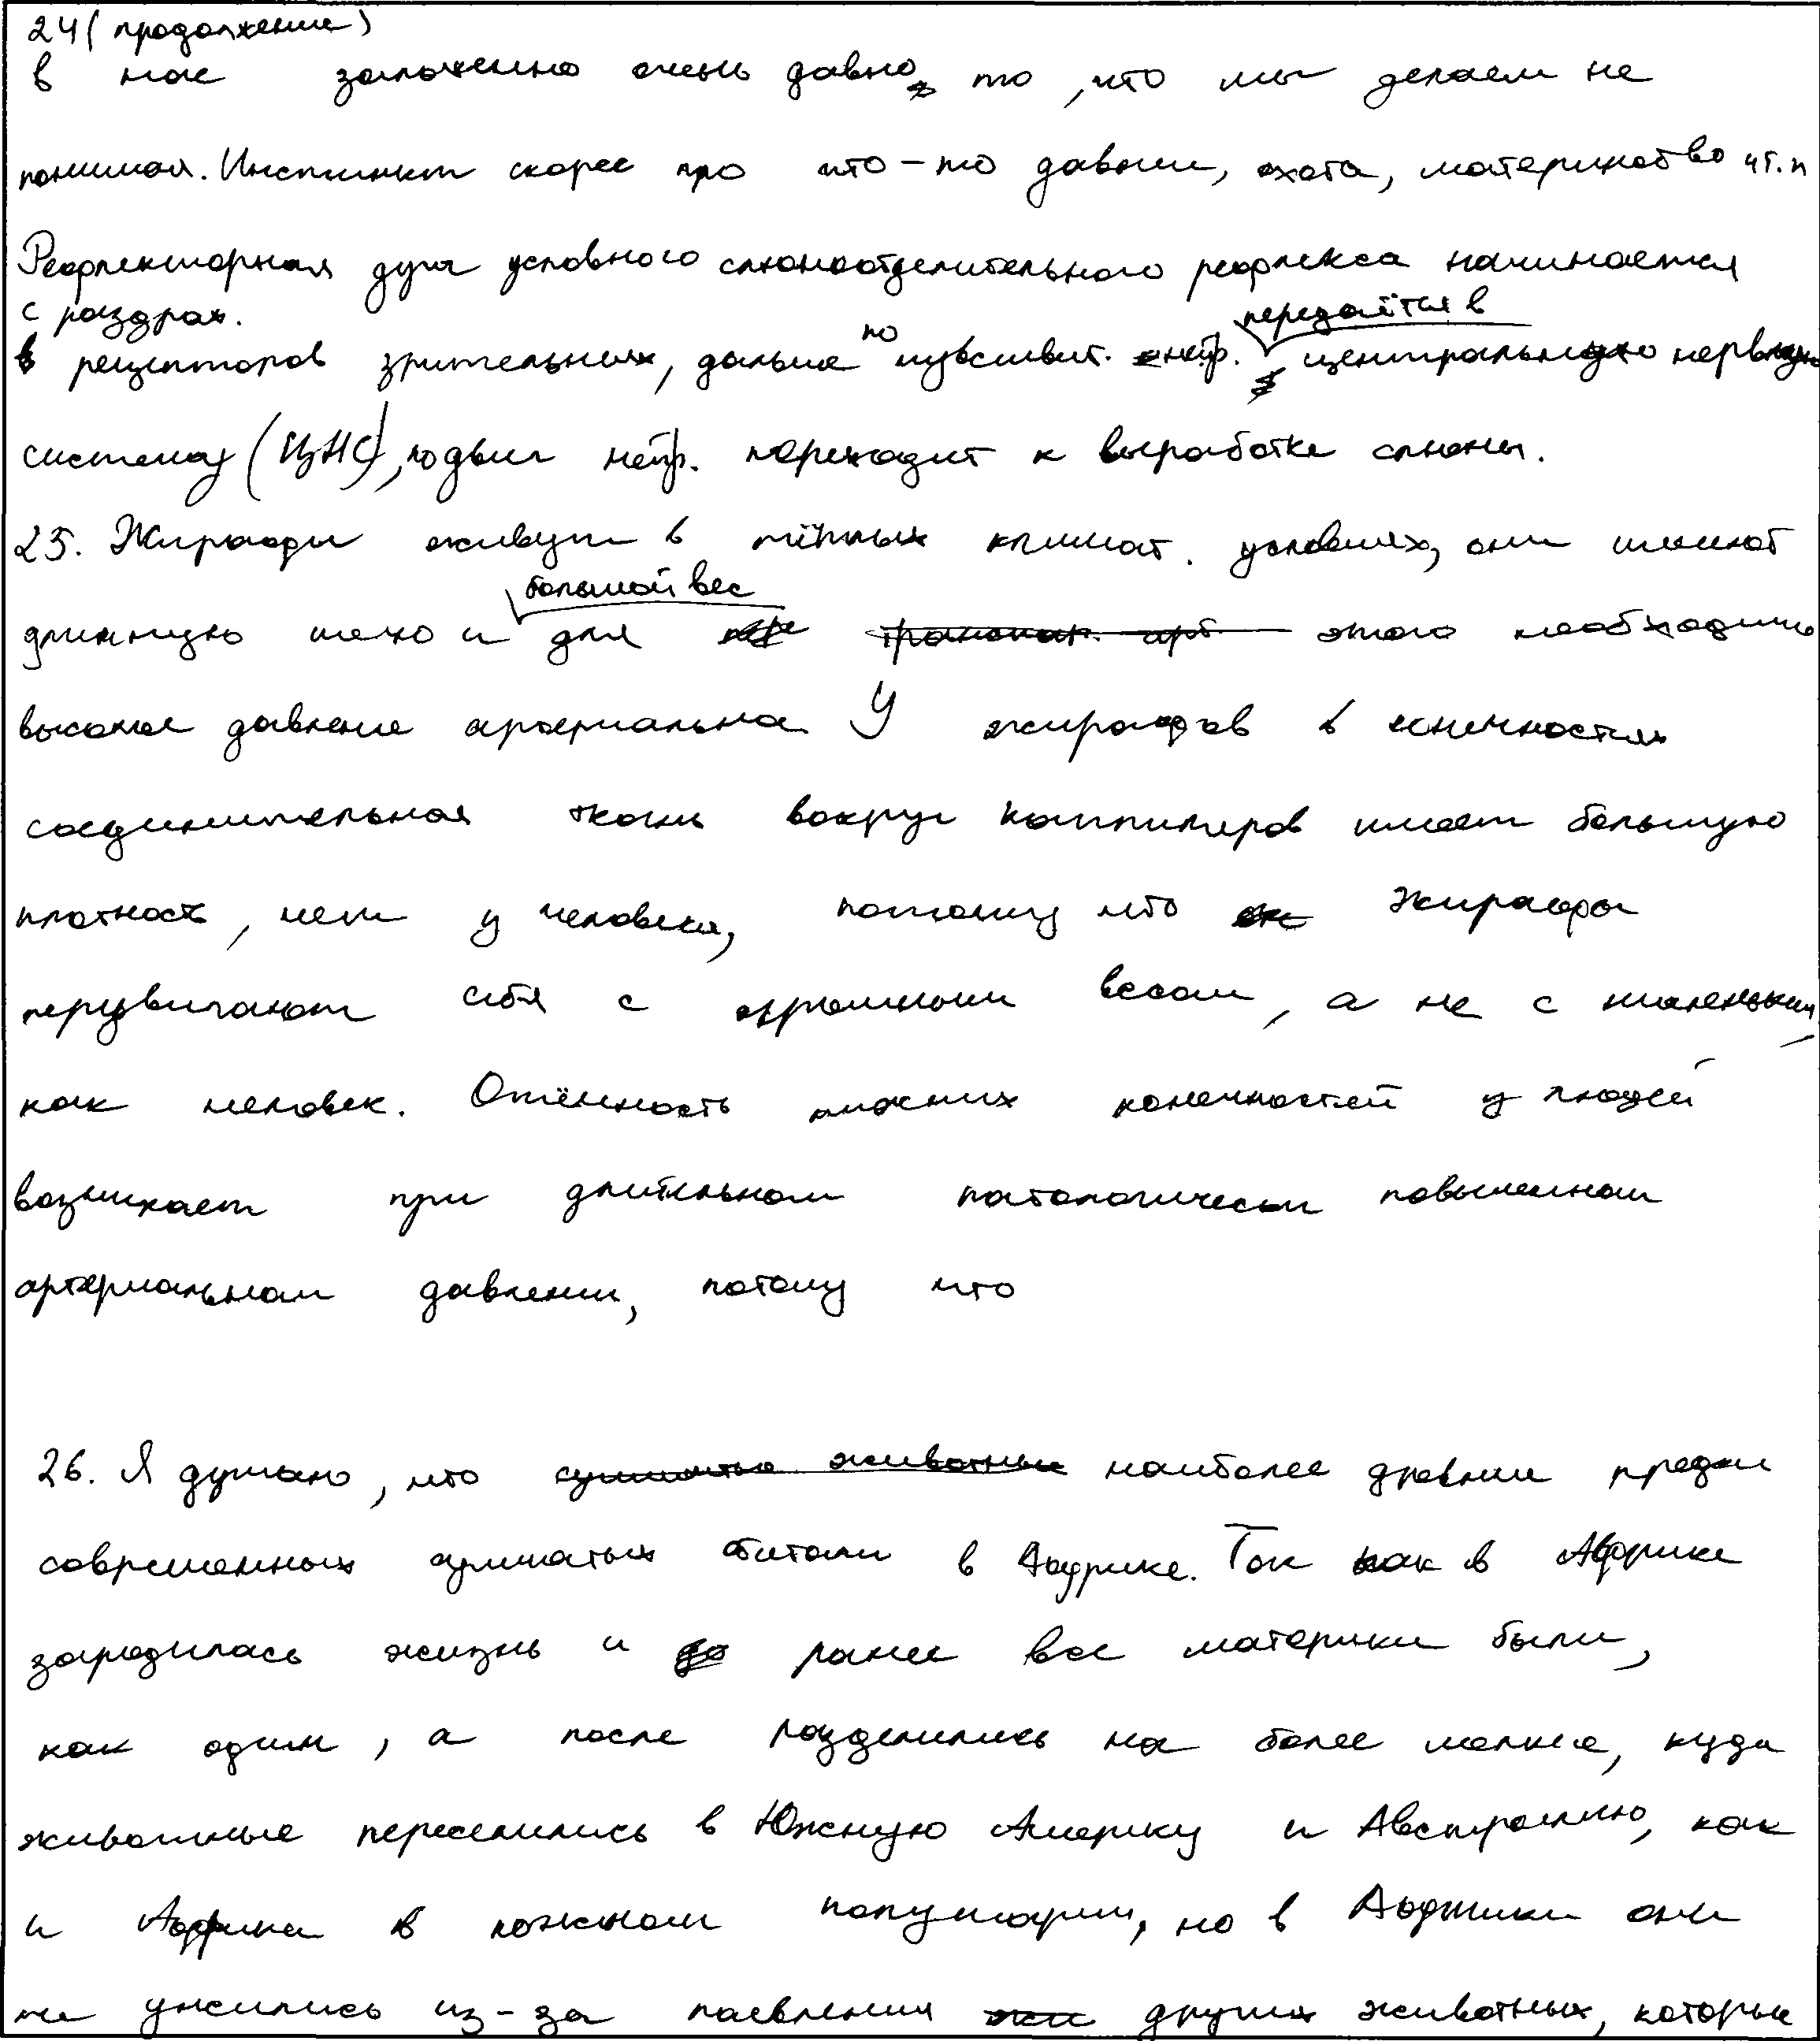 24 (продолжение)
в нас заложенно очень давно, то, что мы делаем не
понимая. Инстинкт скорее про что-то давнии, охота, материнство и т.п
Рефлекторная дуга условного слюноотделительного рефлекса начинается
с раздраж.
рецепторов зрительных, дальше по чувствит. нейр. передаётся в центральную нервную
систему (ЦНС), по двиг нейр. переходит к выработке слюны.
25. Жирафы живут в тёплых климат. условиях, они имеют
длинную шею и большой вес для этого необходимо
высокое давление артериальное У жирафов в конечностях
соединительная ткань вокруг каппиляров имеет большую
плотность, чем у человека, потому что жирафы
передвигают себя с огромным весом, а не с маленьким,
как человек. Отёчность нижних конечностей у людей
возникает при длительном патологически повышенном
артериальном давлении, потому что
26. Я думаю, что наиболее древнии предки
современных сумчатых обитали в Африке. Так как в Африке
зародилась жизнь и ранее все материки были,
как один, а после разделились на более мелкие, куда
животные переселились в Южную Америку и Австралию, как
и Африка в южном полушарии, но в Африки они
не ужились из-за паевления других животных, которые